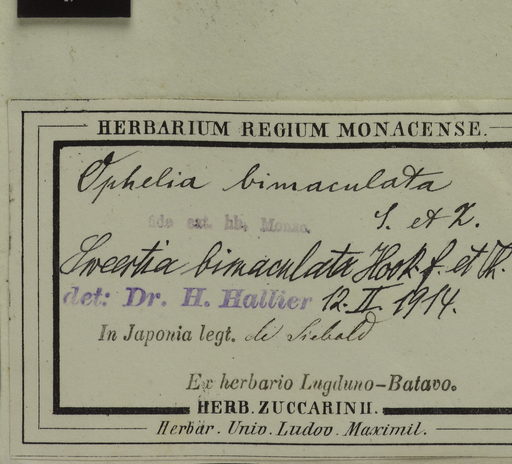 HERBARIUM REGIUM MONACENSE.
Ophelia bimaculata
fide ext. hb. Monac.
S. et Z.
Sweertia bimaculata Hook. f. et Th.
det: Dr. H. Hallier 12. II. 1914.
In Japonia legt. de Siebold
Ex herbario Lugduno-Batavo.
HERB. ZUCCARINII.
Herbar. Univ. Ludov. Maximil.